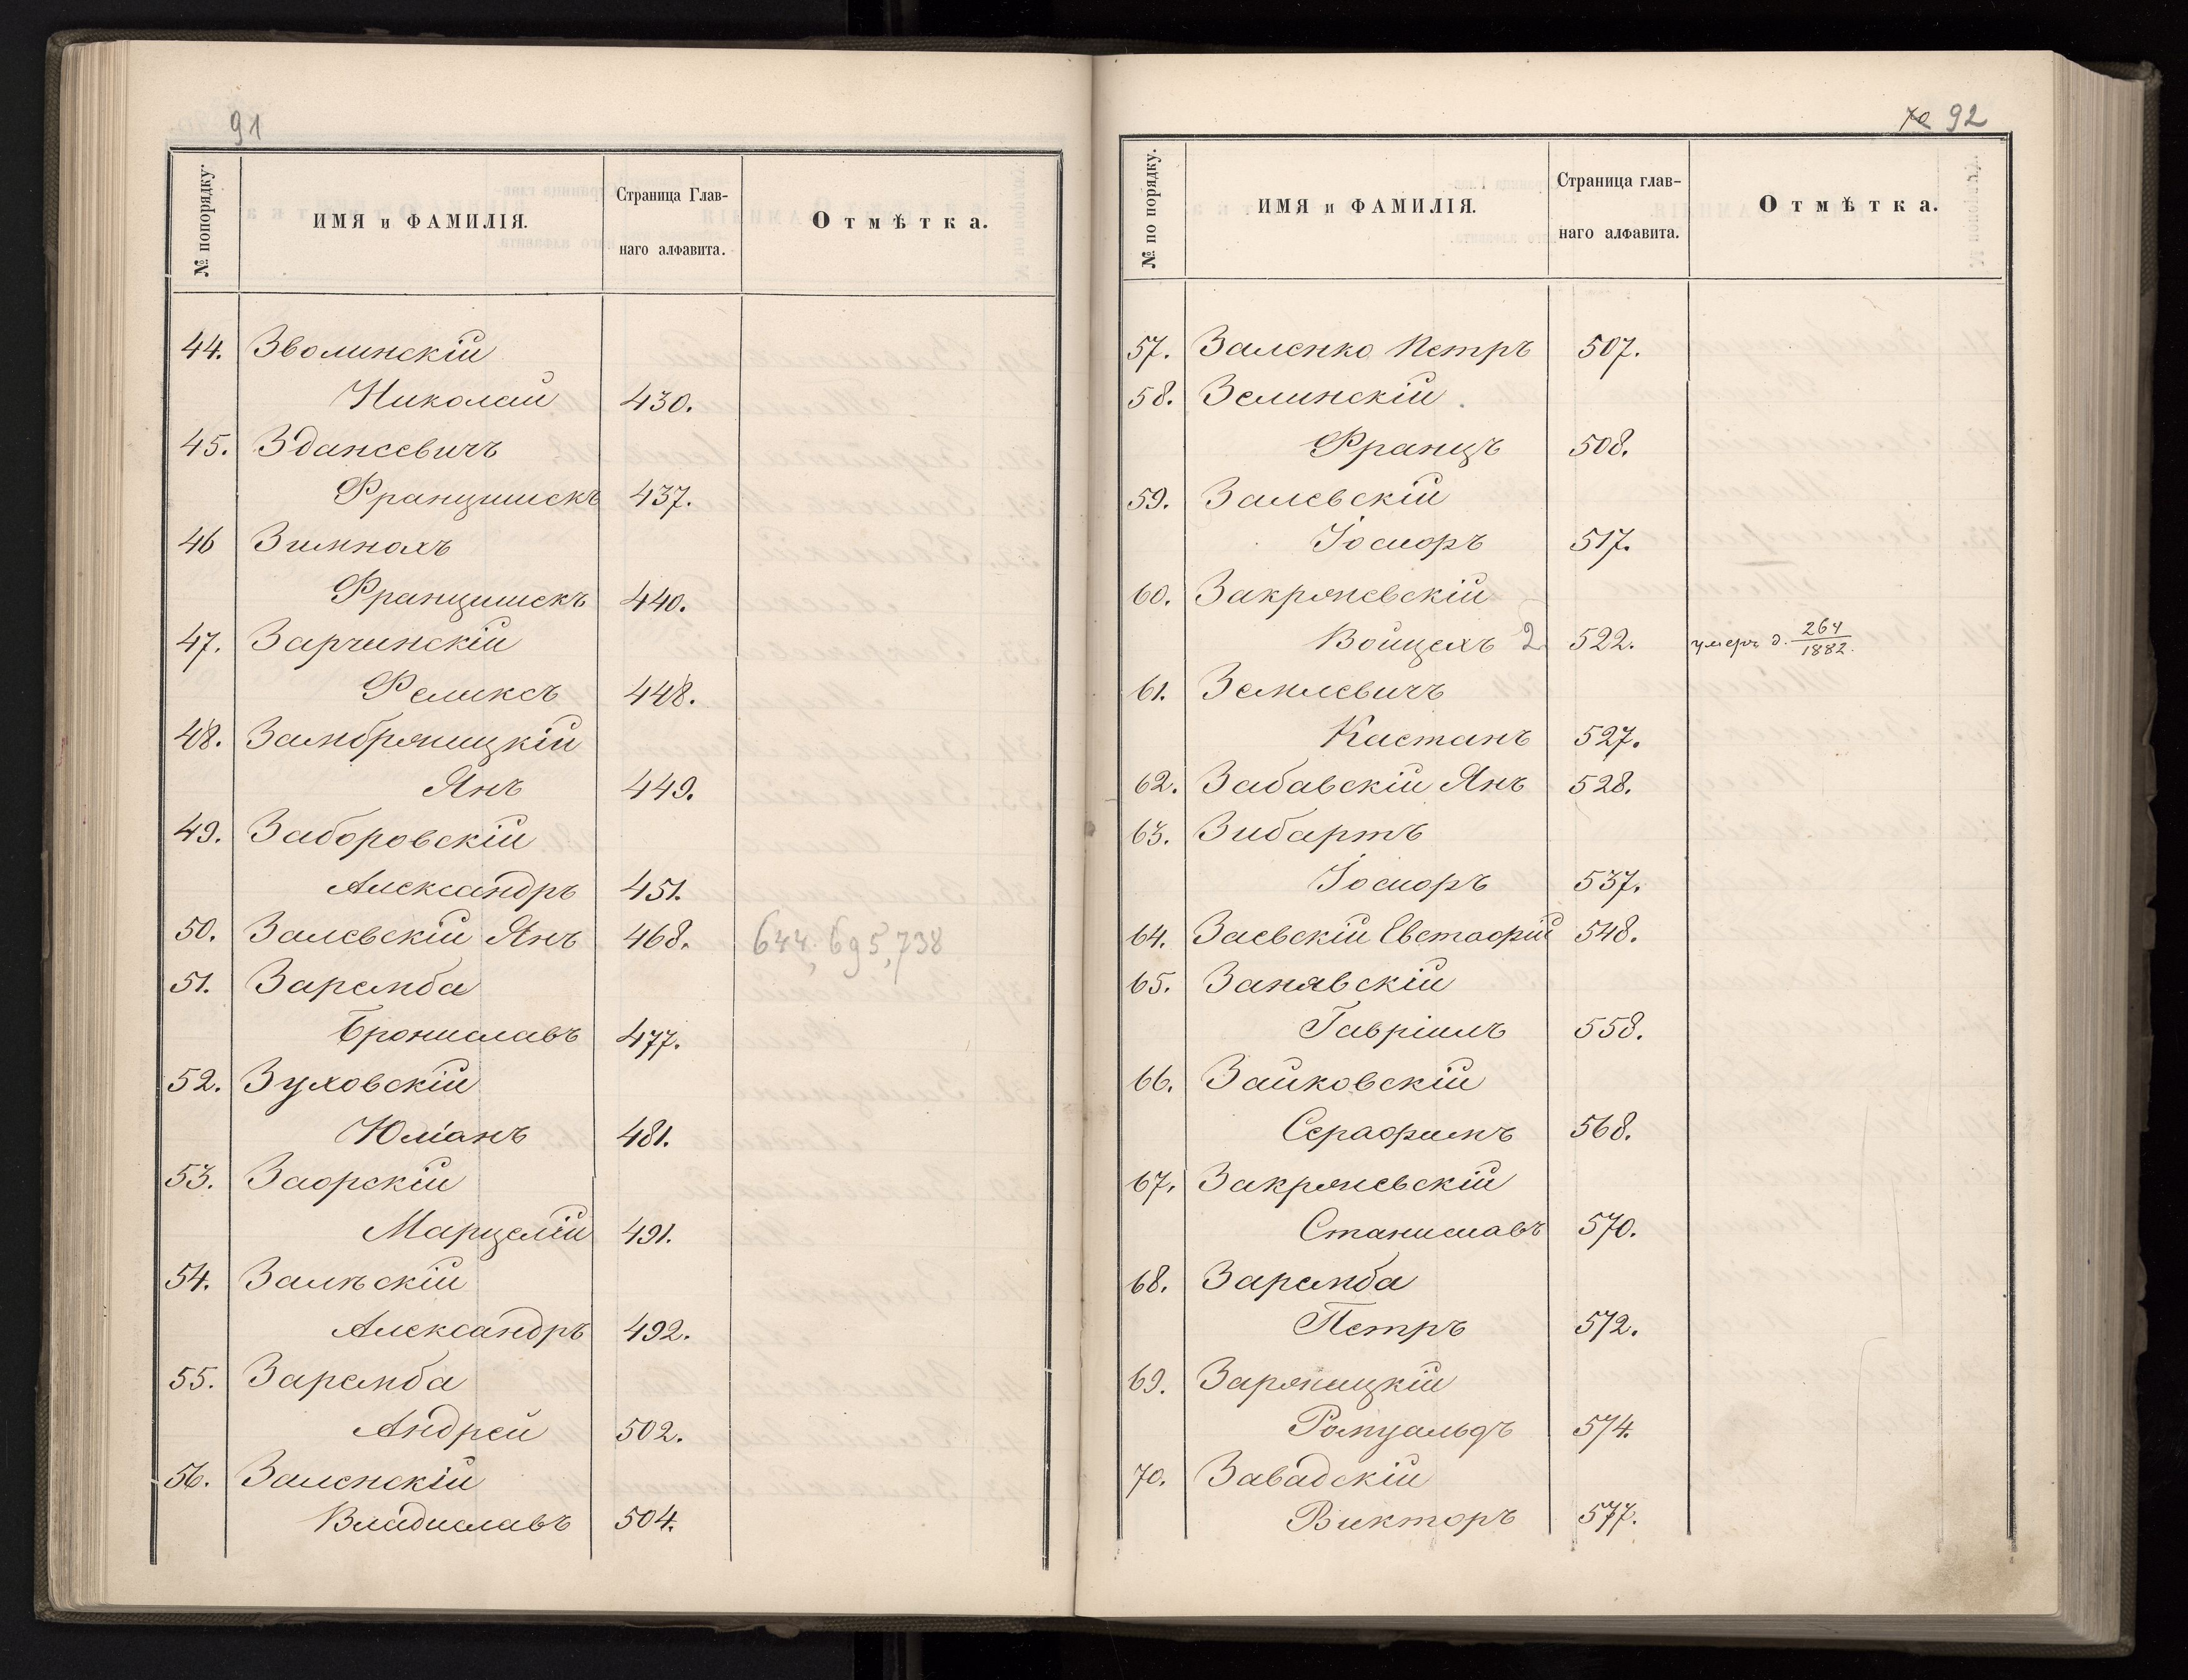 91
№ попорядку.
ИМЯ и ФАМИЛІЯ.
Страница Глав-
наго алфавита.
Отмѣтка.
44. Зволинскій
Николай 430.
45. Здансевичъ
Францишекъ 437.
46 Зимнохъ
Францишекъ 440.
47. Зарчинскій
Феликсъ 448.
48. Замбржицкій
Янъ 449.
49. Заборовскій
Александръ 451.
50. Залевскій Янъ 468. 644, 695, 738
51. Заремба
Брониславъ 477.
52. Зуховскій
Юліанъ 481.
53. Заорскій
Марцелій 491.
54. Залѣскій
Александръ 492.
55. Заремба
Андрей 502.
56. Заленскій
Владиславъ 504.
70 92
№ по порядку.
ИМЯ и ФАМИЛІЯ.
Страница глав-
наго алфавита.
Отмѣтка.
57. Заленко Петръ 507.
58. Зелинскій
Францъ 508.
59. Залевскій
Іосифъ 517.
60. Закржевскій
Войцехъ 2 522. умеръ д. 264/1882.
61. Землевичъ
Каетанъ 527.
62. Забавскій Янъ 528.
63. Зибартъ
Іосифъ 537.
64. Заевскій Евстафій 548.
65. Занявскій
Гавріилъ 558.
66. Зайковскій
Серафимъ 568.
67. Закржевскій
Станиславъ 570.
68. Заремба
Петръ 572.
69. Заржицкій
Ромуальдъ 574.
70. Завадскій
Викторъ 577.